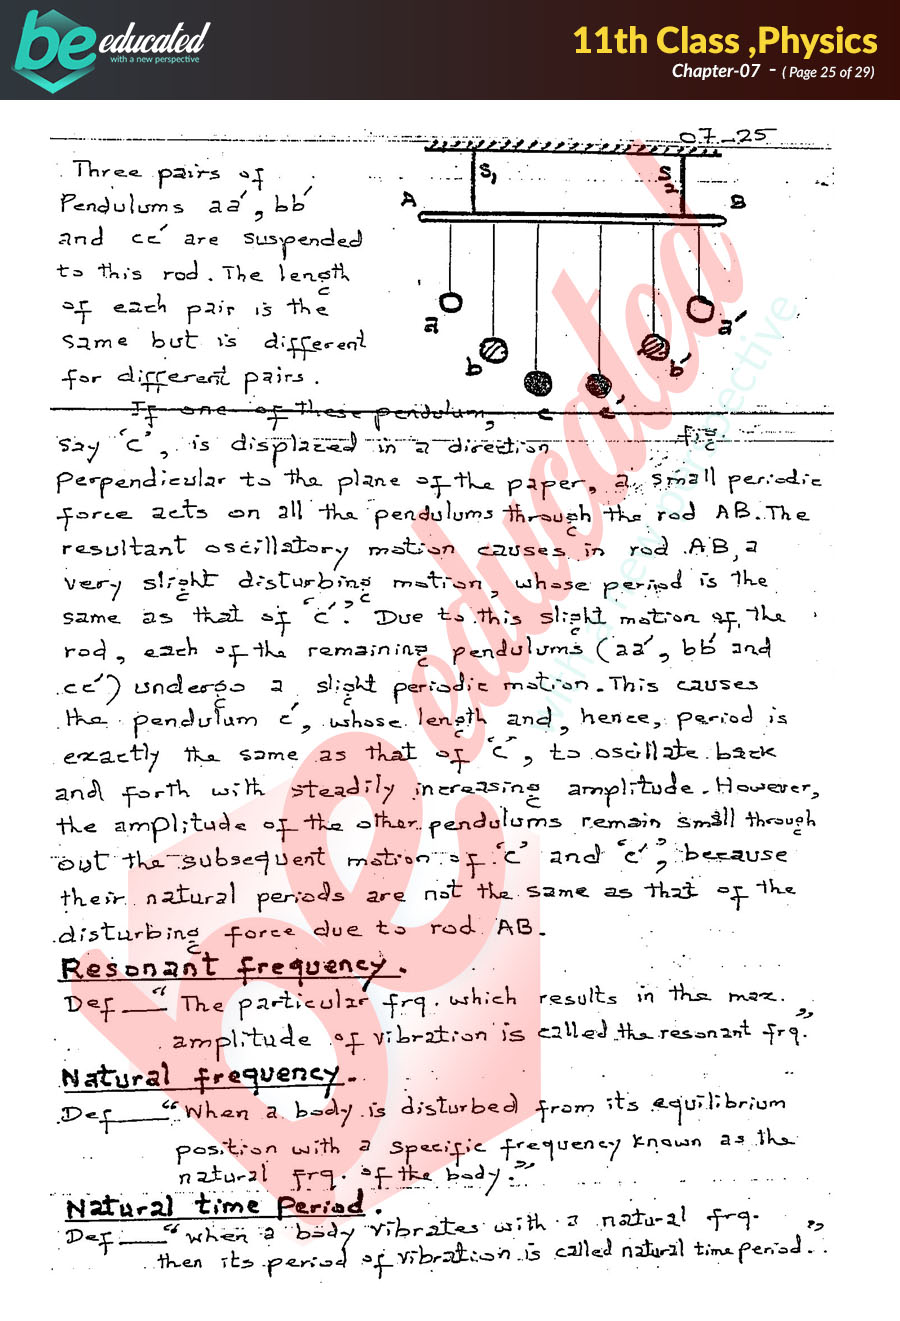 be educated
with a new perspective
11th Class ,Physics
Chapter-07 - ( Page 25 of 29)
07-25
Three pairs of
Pendulums aa′, bb′
and cc′ are suspended
to this rod. The length
of each pair is the
same but is different
for different pairs.
S₁
S₂
A
B
a
a′
b
b′
c
c′
fig
If one of these pendulum,
say 'c', is displaced in a direction
perpendicular to the plane of the paper, a small periodic
force acts on all the pendulums through the rod AB. The
resultant oscillatory motion causes in rod AB, a
very slight disturbing motion, whose period is the
same as that of 'c'. Due to this slight motion of the
rod, each of the remaining pendulums (aa′, bb′ and
cc′) undergo a slight periodic motion. This causes
the pendulum c′, whose length and, hence, period is
exactly the same as that of 'c', to oscillate back
and forth with steadily increasing amplitude. However,
the amplitude of the other pendulums remain small through
out the subsequent motion of 'c' and 'c′', because
their natural periods are not the same as that of the
disturbing force due to rod AB.
Resonant frequency.
Def — "The particular frq. which results in the max.
amplitude of vibration is called the resonant frq."
Natural frequency.
Def — "When a body is disturbed from its equilibrium
position with a specific frequency known as the
natural frq. of the body."
Natural time Period.
Def — "when a body vibrates with a natural frq.
then its period of vibration is called natural time period."
be educated
with a new perspective